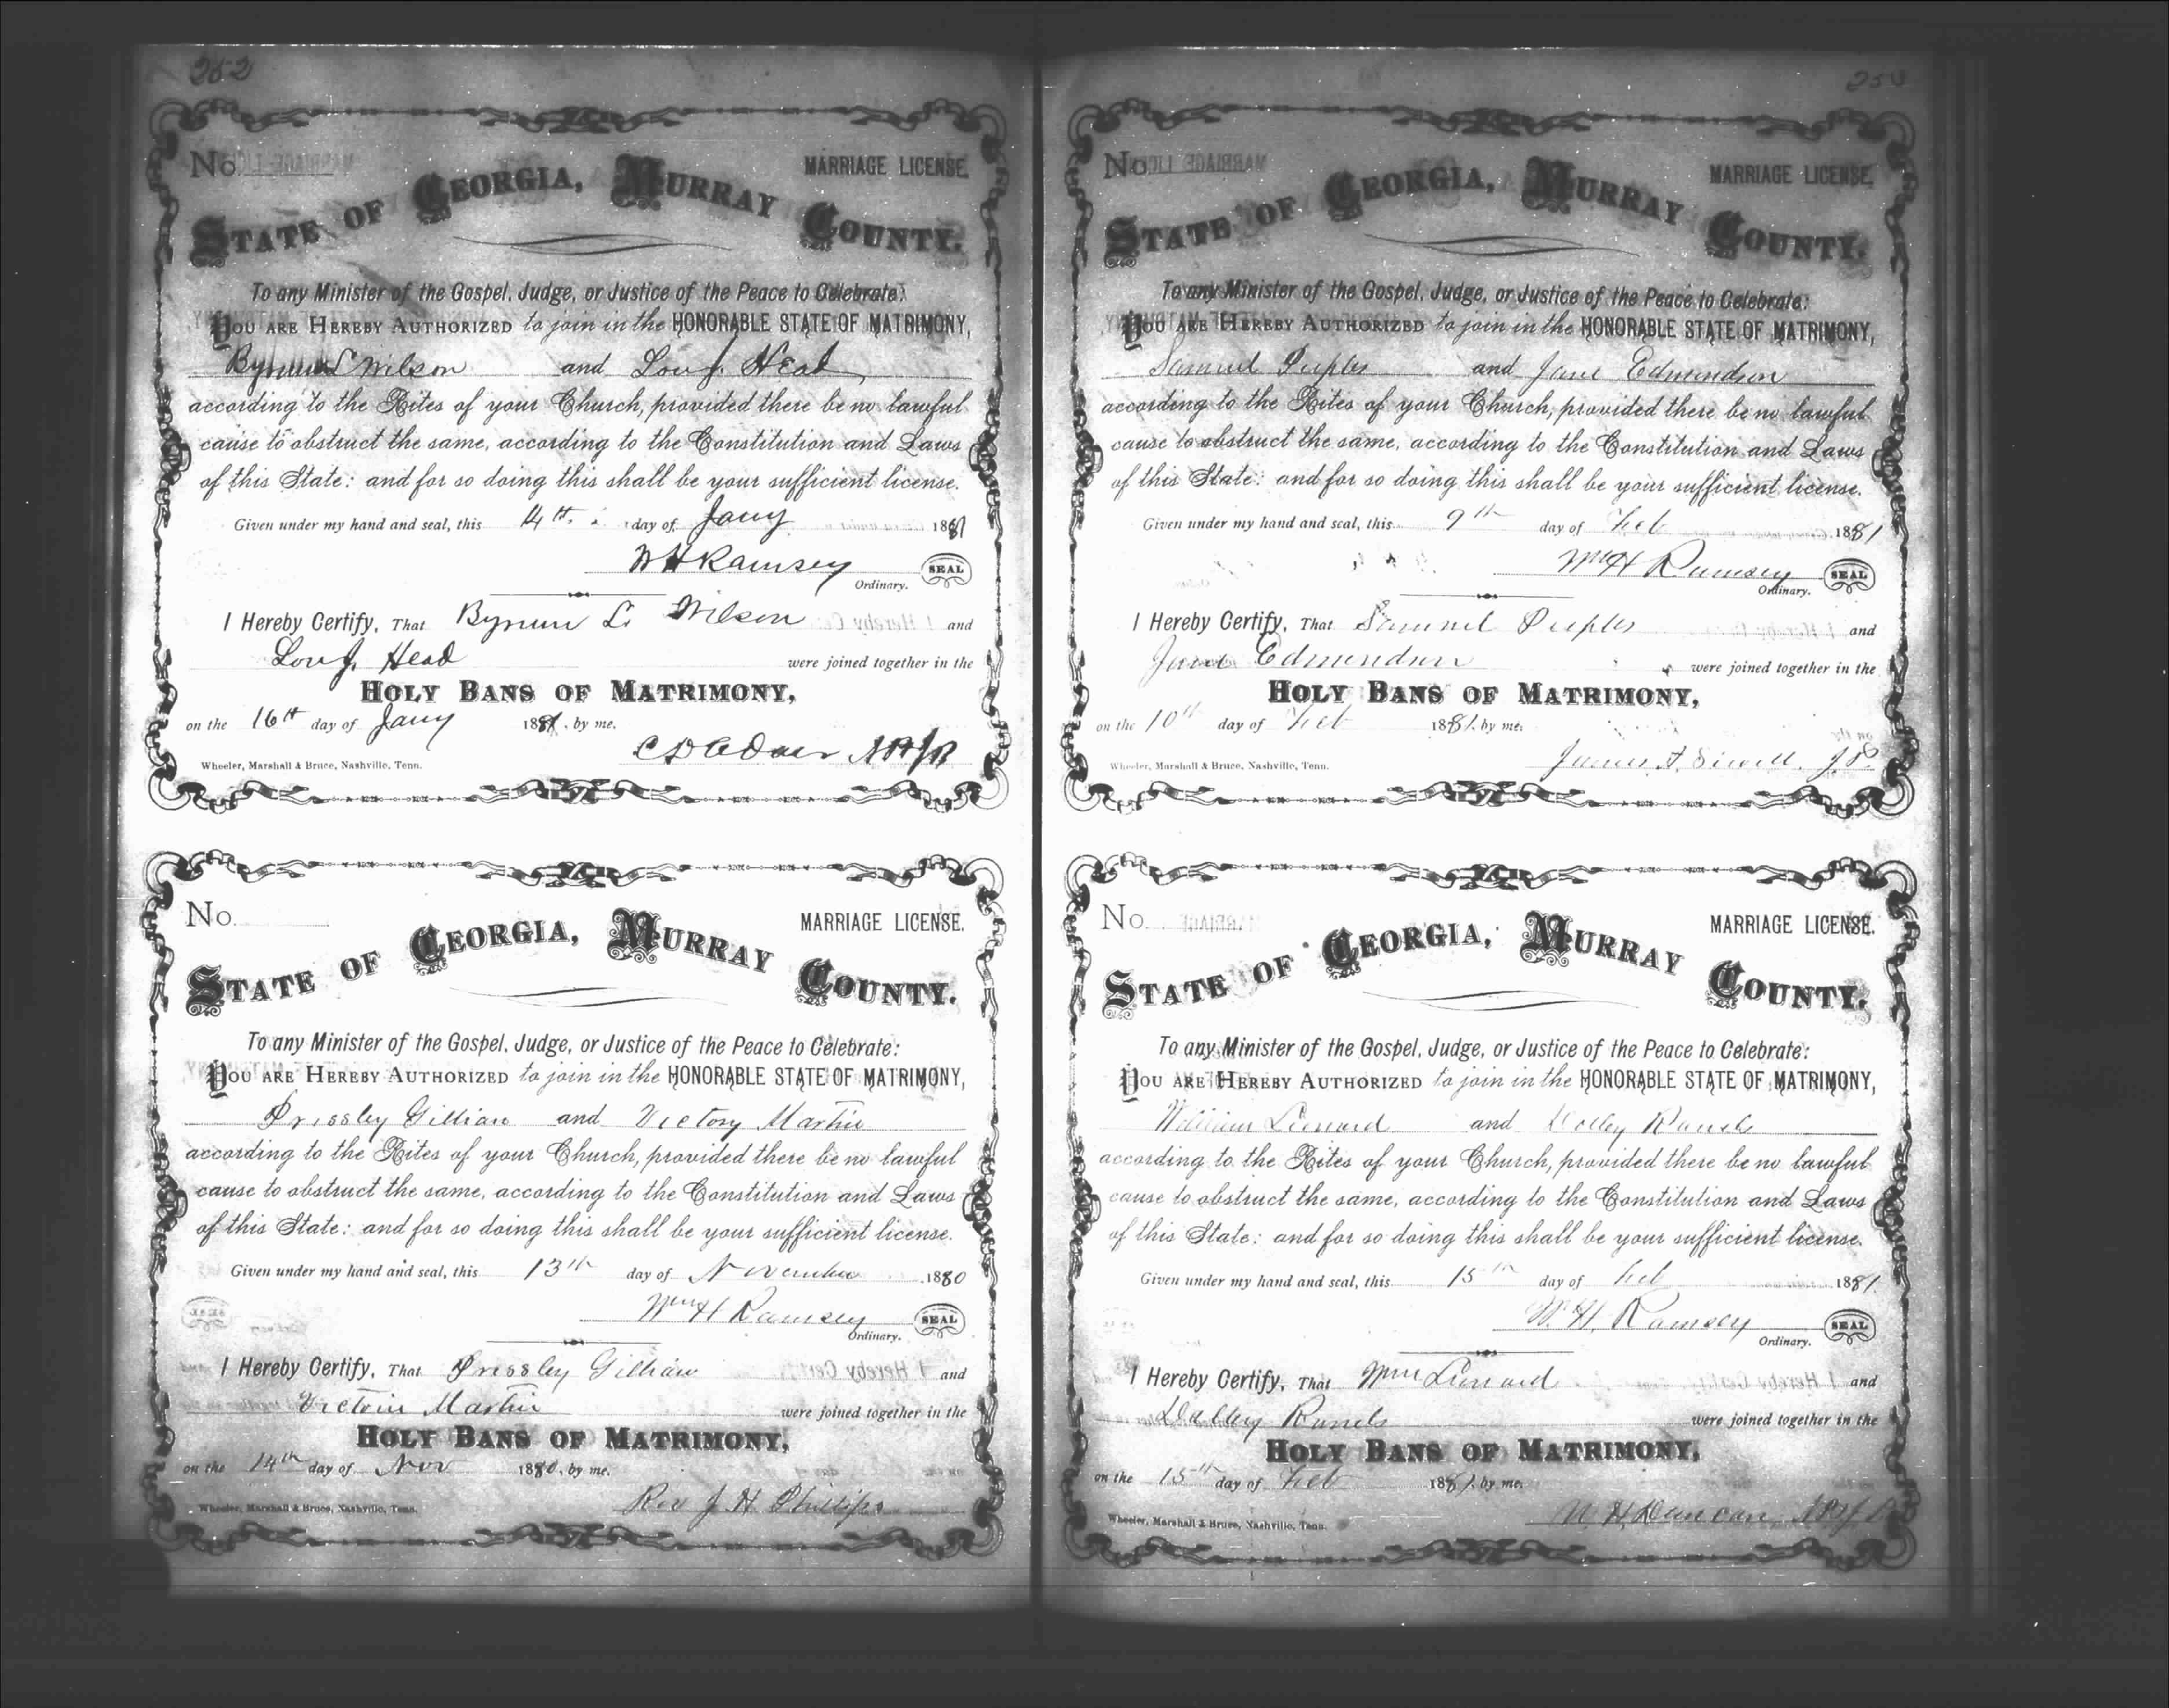 252
No. MARRIAGE LICENSE.
STATE OF GEORGIA, MURRAY COUNTY.
To any Minister of the Gospel, Judge, or Justice of the Peace to Celebrate:
YOU ARE HEREBY AUTHORIZED to join in the HONORABLE STATE OF MATRIMONY,
Bynum L Wilson and Lou J. Head
according to the Rites of your Church, provided there be no lawful
cause to obstruct the same, according to the Constitution and Laws
of this State: and for so doing this shall be your sufficient license.
Given under my hand and seal, this 14th day of Jany 1881
W H Ramsey SEAL
Ordinary.
I Hereby Certify, That Bynum L. Wilson and
Lou J. Head were joined together in the
HOLY BANS OF MATRIMONY,
on the 16th day of Jany 1881, by me.
Wheeler, Marshall & Bruce, Nashville, Tenn.
No. MARRIAGE LICENSE.
STATE OF GEORGIA, MURRAY COUNTY.
To any Minister of the Gospel, Judge, or Justice of the Peace to Celebrate:
YOU ARE HEREBY AUTHORIZED to join in the HONORABLE STATE OF MATRIMONY,
Pressley Gillian and Victory Martin
according to the Rites of your Church, provided there be no lawful
cause to obstruct the same, according to the Constitution and Laws
of this State: and for so doing this shall be your sufficient license.
Given under my hand and seal, this 13th day of November 1880
Wm H Ramsey SEAL
Ordinary.
I Hereby Certify, That Pressley Gillian and
Victoria Martin were joined together in the
HOLY BANS OF MATRIMONY,
on the 14th day of Nov 1880, by me.
Rev J H Phillips
Wheeler, Marshall & Bruce, Nashville, Tenn.
No. MARRIAGE LICENSE.
STATE OF GEORGIA, MURRAY COUNTY.
To any Minister of the Gospel, Judge, or Justice of the Peace to Celebrate:
YOU ARE HEREBY AUTHORIZED to join in the HONORABLE STATE OF MATRIMONY,
Samuel Peeples and Jane Edmondson
according to the Rites of your Church, provided there be no lawful
cause to obstruct the same, according to the Constitution and Laws
of this State: and for so doing this shall be your sufficient license.
Given under my hand and seal, this 9th day of Feb 1881
Wm H Ramsey SEAL
Ordinary.
I Hereby Certify, That Samuel Peeples and
Jane Edmondson were joined together in the
HOLY BANS OF MATRIMONY,
on the 10th day of Feb 1881, by me.
James A. J.P.
Wheeler, Marshall & Bruce, Nashville, Tenn.
No. MARRIAGE LICENSE.
STATE OF GEORGIA, MURRAY COUNTY.
To any Minister of the Gospel, Judge, or Justice of the Peace to Celebrate:
YOU ARE HEREBY AUTHORIZED to join in the HONORABLE STATE OF MATRIMONY,
William Lenard and Dolley
according to the Rites of your Church, provided there be no lawful
cause to obstruct the same, according to the Constitution and Laws
of this State: and for so doing this shall be your sufficient license.
Given under my hand and seal, this 15th day of Feb 1881.
W. H. Ramsey SEAL
Ordinary.
I Hereby Certify, That Wm Lenard and
Dolley were joined together in the
HOLY BANS OF MATRIMONY,
on the 15th day of Feb 1881, by me.
W. H. Duncan
Wheeler, Marshall & Bruce, Nashville, Tenn.